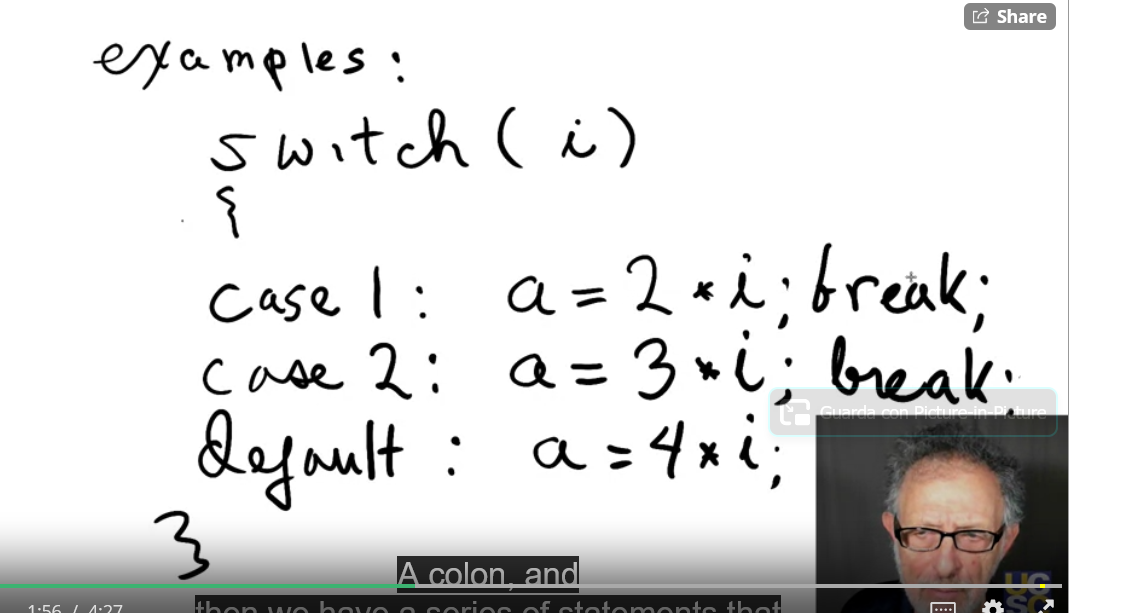 Share
examples:
switch ( i )
{
case 1 : a = 2 * i ; break;
case 2 : a = 3 * i ; break;
Guarda con Picture-in-Picture
default : a = 4 * i ;
}
A colon, and
then we have a series of statements that
1:56 / 4:27